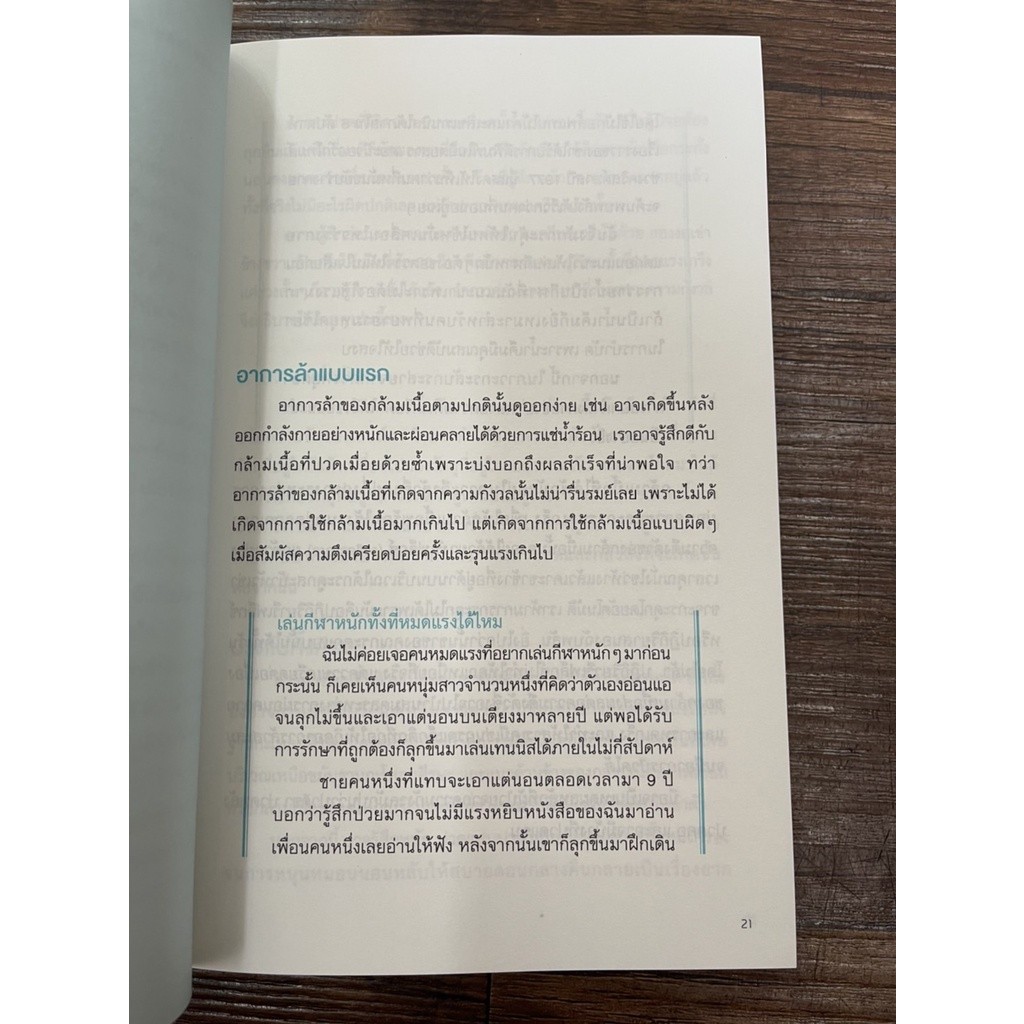 อาการล้าแบบแรก
อาการล้าของกล้ามเนื้อตามปกตินั้นดูออกง่าย เช่น อาจเกิดขึ้นหลัง
ออกกำลังกายอย่างหนักและผ่อนคลายได้ด้วยการแช่น้ำร้อน เราอาจรู้สึกดีกับ
กล้ามเนื้อที่ปวดเมื่อยด้วยซ้ำเพราะบ่งบอกถึงผลสำเร็จที่น่าพอใจ ทว่า
อาการล้าของกล้ามเนื้อที่เกิดจากความกังวลนั้นไม่น่ารื่นรมย์เลย เพราะไม่ได้
เกิดจากการใช้กล้ามเนื้อมากเกินไป แต่เกิดจากการใช้กล้ามเนื้อแบบผิดๆ
เมื่อสัมผัสความตึงเครียดบ่อยครั้งและรุนแรงเกินไป
เล่นกีฬาหนักทั้งที่หมดแรงได้ไหม
ฉันไม่ค่อยเจอคนหมดแรงที่อยากเล่นกีฬาหนักๆ มาก่อน
กระนั้น ก็เคยเห็นคนหนุ่มสาวจำนวนหนึ่งที่คิดว่าตัวเองอ่อนแอ
จนลุกไม่ขึ้นและเอาแต่นอนบนเตียงมาหลายปี แต่พอได้รับ
การรักษาที่ถูกต้องก็ลุกขึ้นมาเล่นเทนนิสได้ภายในไม่กี่สัปดาห์
ชายคนหนึ่งที่แทบจะเอาแต่นอนตลอดเวลามา 9 ปี
บอกว่ารู้สึกป่วยมากจนไม่มีแรงหยิบหนังสือของฉันมาอ่าน
เพื่อนคนหนึ่งเลยอ่านให้ฟัง หลังจากนั้นเขาก็ลุกขึ้นมาฝึกเดิน
21